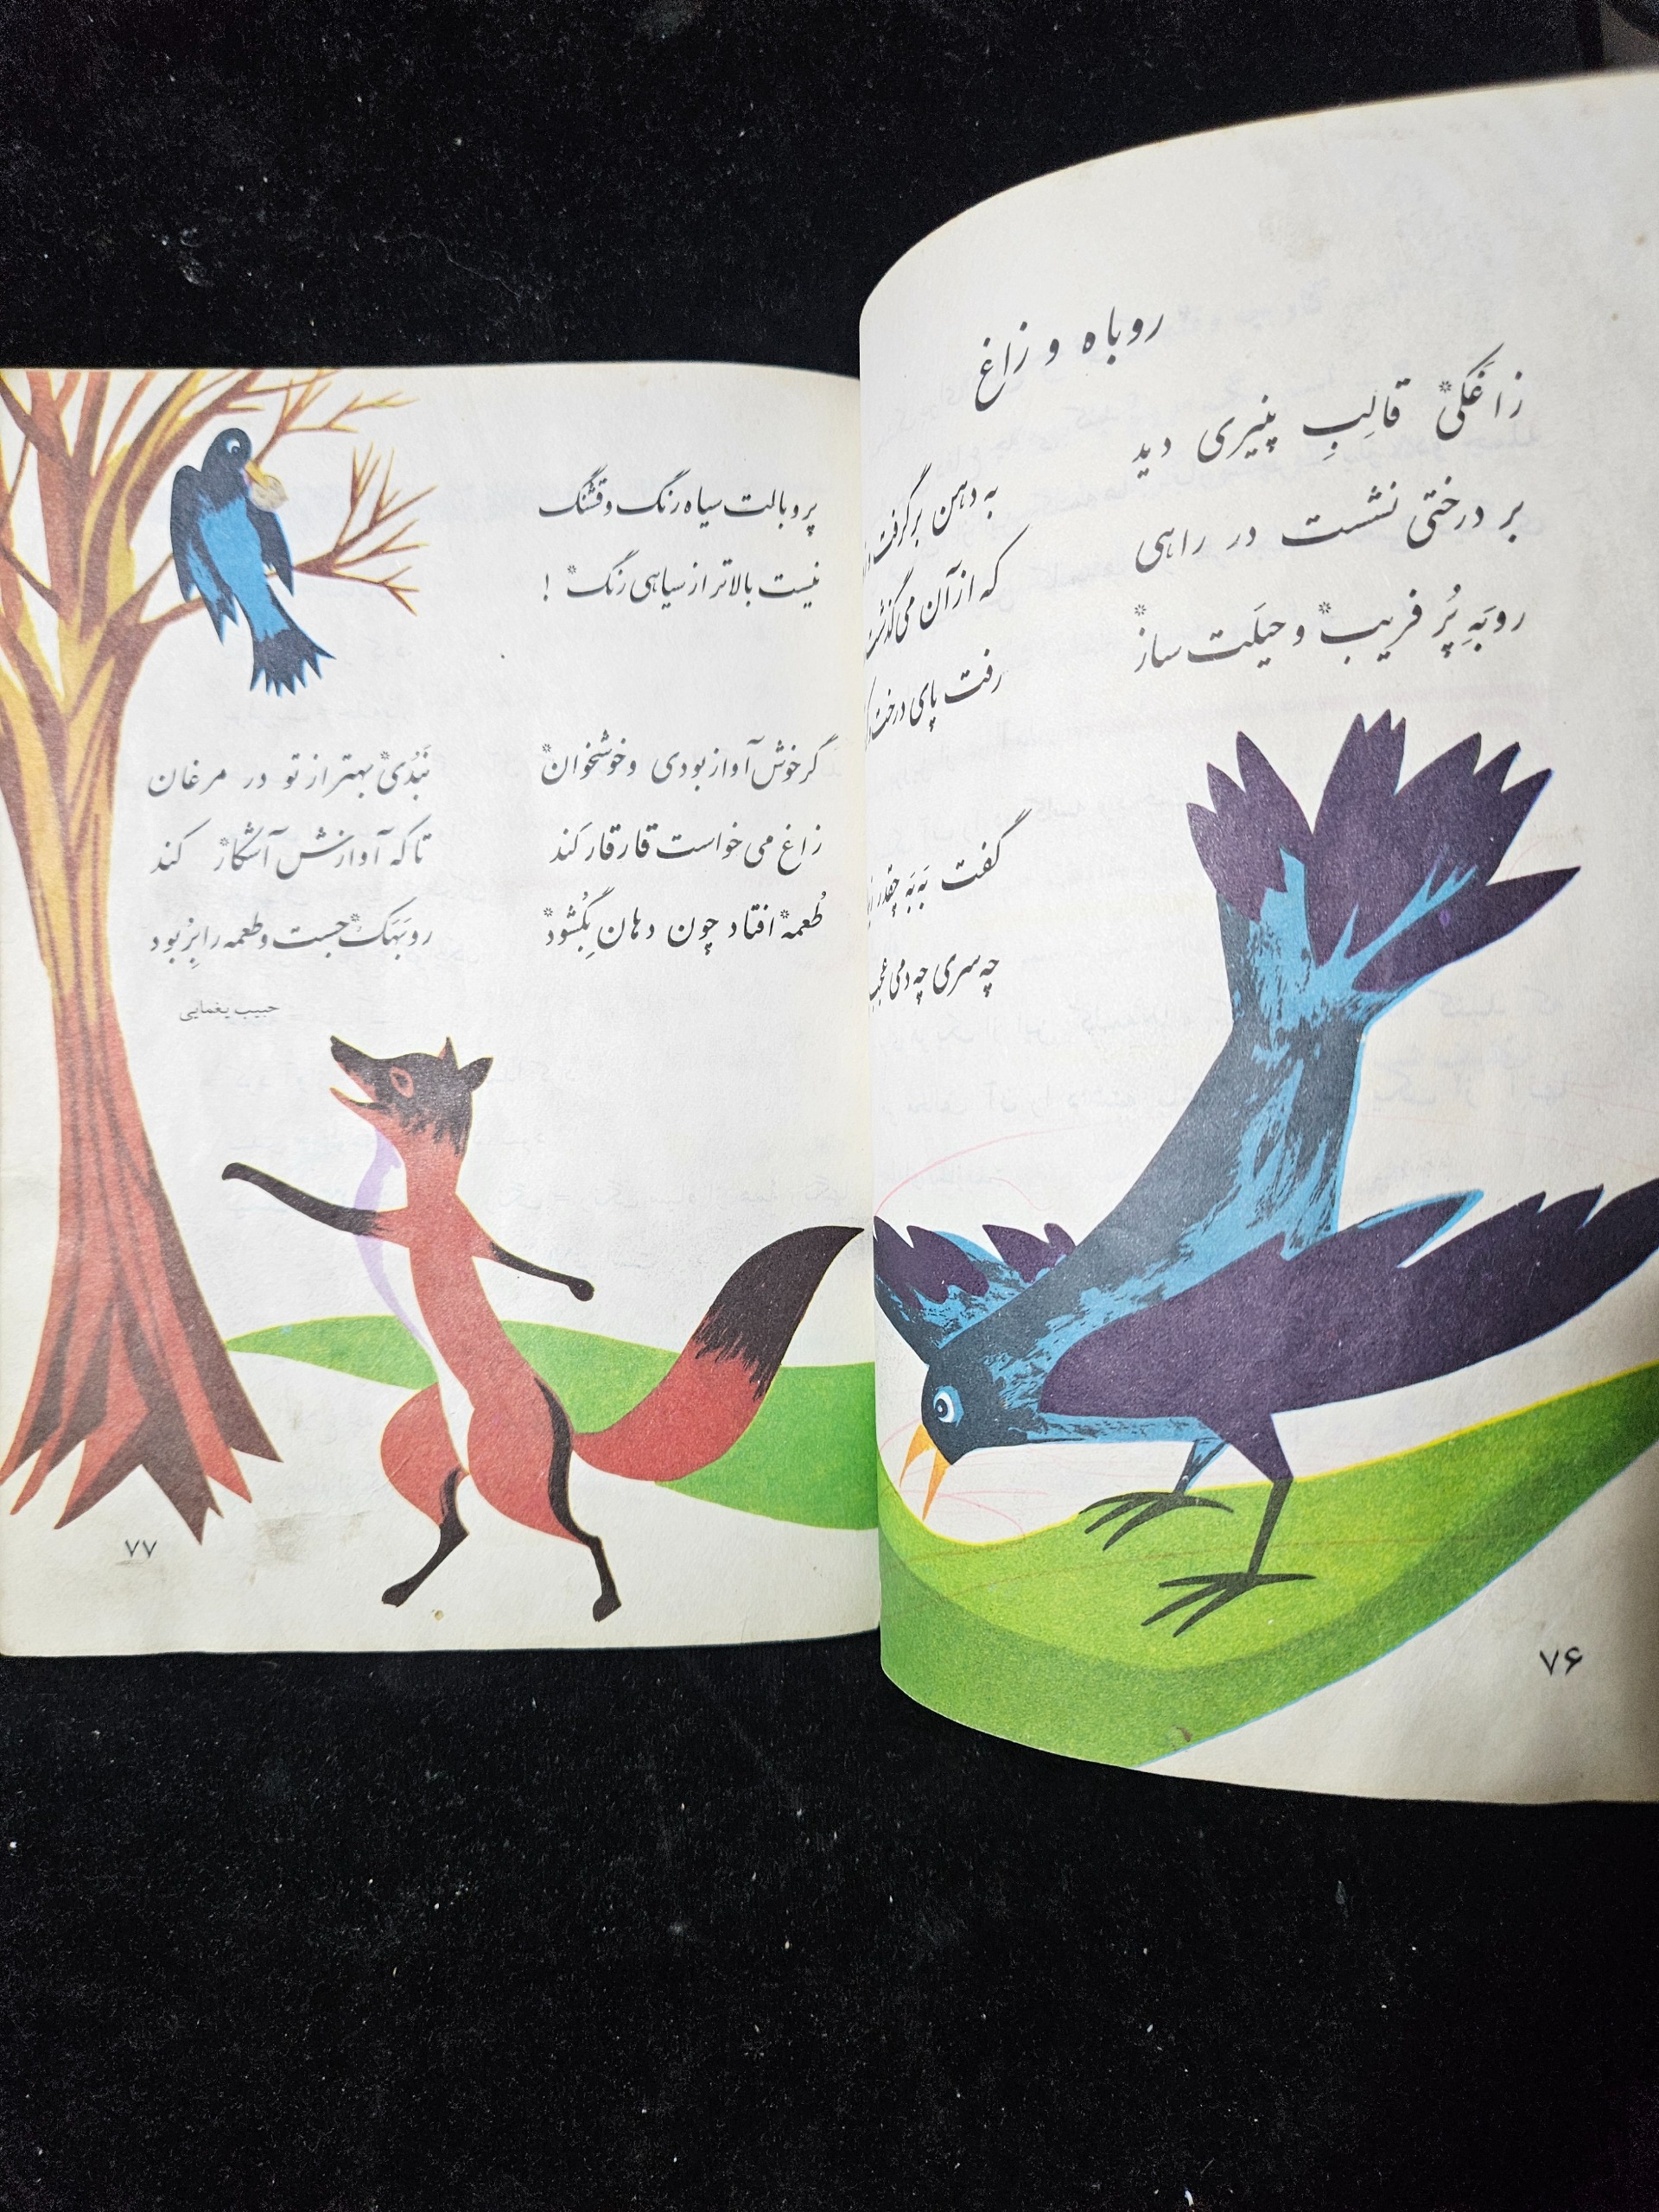 روباه و زاغ
زاغَکی* قالِبِ پنیری دید به دهن برگرفت
بر درختی نشست در راهی که از آن می‌گذشت
روبَهِ پُر فریب* و حیلَت ساز* رفت پای درخت
گفت بَه‌بَه چقدر
چه سری چه دمی
۷۶
پر و بالت سیاه رنگ و قشنگ
نیست بالاتر از سیاهی رنگ* !
گر خوش آواز بودی و خوشخوان* نَبُدی* بهتر از تو در مرغان
زاغ می خواست قار قار کَند تا که آوازش آشکار* کند
طُعمه* افتاد چون دهان بِگشود* روبَهَک* جست و طعمه را بِربود
حبیب یغمایی
۷۷